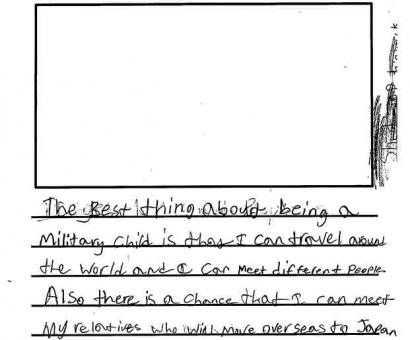 The Best thing about being a
Military child is that I can travel around
the world and I can meet different People.
Also there is a chance that I can meet
My relatives who will move overseas to Japan